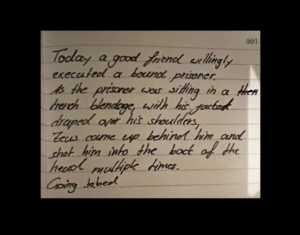 001
Today a good friend willingly
executed a bound prisoner.
As the prisoner was sitting in a
trench with his jacket
draped over his shoulders,
came up behind him and
shot him into the back of the
head multiple times.
Going to bed